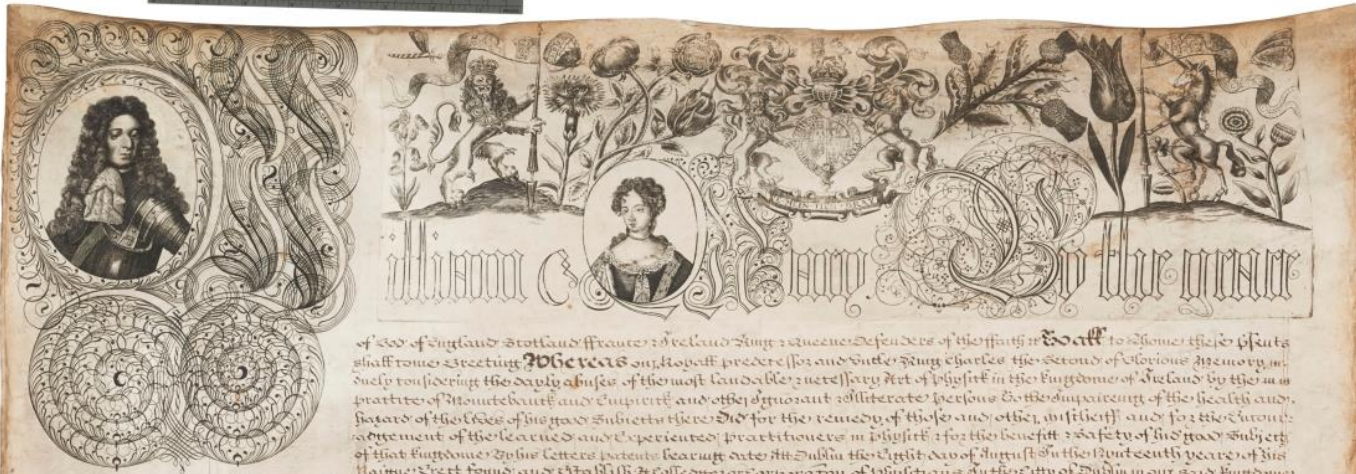 William & Mary By the grace
of God of England Scotland ffrance & Ireland King & Queene Defenders of the ffaith & To all to whome these psents
shall come Greeting Whereas our Royall predecessor and Uncle King Charles the Second of Glorious Memory
duely considering the dayly abuses of the most laudable & necessary Art of Physick in the kingdome of Ireland by the
practice of Mountebanck and Empirick and other Ignorant & Illiterate Persons to the Impaireing of the health and
hazard of the lives of his good Subjects there Did for the remedy of those and other mischeiff and for the Incour-
adgement of the learned and Experienced practitioners in Physick & for the benefitt & Safety of his good Subjects
of that kingdome By his letters patents bearing date Att Dublin the Eight day of August In the Nynteenth yeare of his
Raigne Erect found and Establish A Colledge or Corporation of Physicians In the Citty of Dublin in our